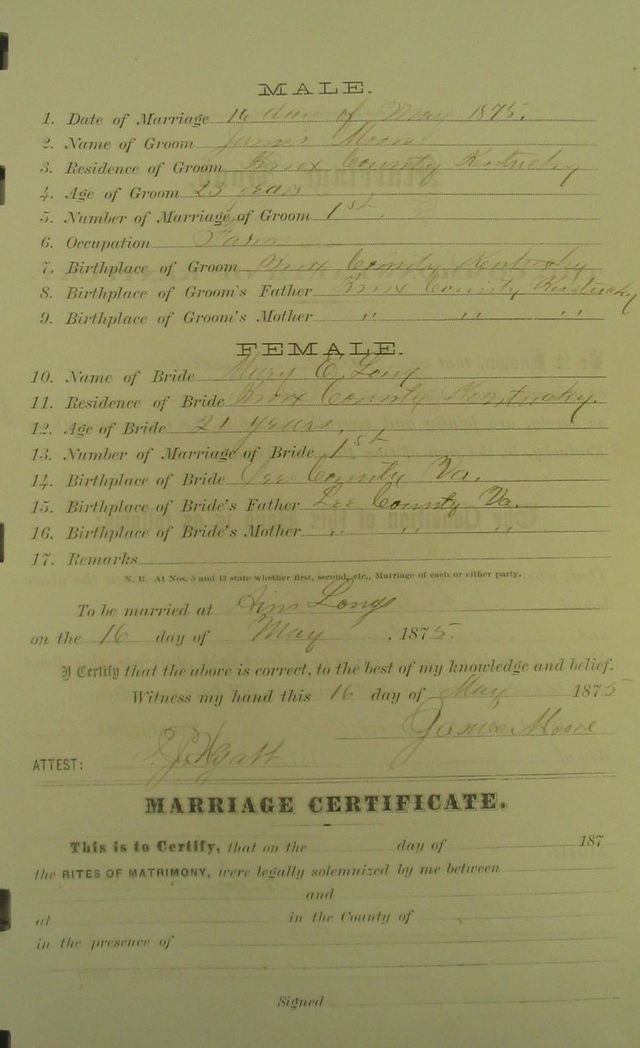 MALE.
1. Date of Marriage 16 day of May 1875.
2. Name of Groom James Moore
3. Residence of Groom Knox County Kentucky
4. Age of Groom 23 years
5. Number of Marriage of Groom 1st.
6. Occupation Farm
7. Birthplace of Groom Knox County Kentucky
8. Birthplace of Groom's Father Knox County Kentucky
9. Birthplace of Groom's Mother " " "
FEMALE.
10. Name of Bride Mary E. Long
11. Residence of Bride Knox County Kentucky.
12. Age of Bride 21 years.
13. Number of Marriage of Bride 1st.
14. Birthplace of Bride Lee County Va.
15. Birthplace of Bride's Father Lee County Va.
16. Birthplace of Bride's Mother " " "
17. Remarks
N. B. At Nos. 5 and 13 state whether first, second, etc., Marriage of each or either party.
To be married at Longs
on the 16 day of May , 1875.
I Certify that the above is correct, to the best of my knowledge and belief.
Witness my hand this 16 day of May 1875
James Moore
ATTEST: Hyatt
MARRIAGE CERTIFICATE.
This is to Certify, that on the day of 187
the RITES OF MATRIMONY, were legally solemnized by me between
and
at in the County of
in the presence of
Signed